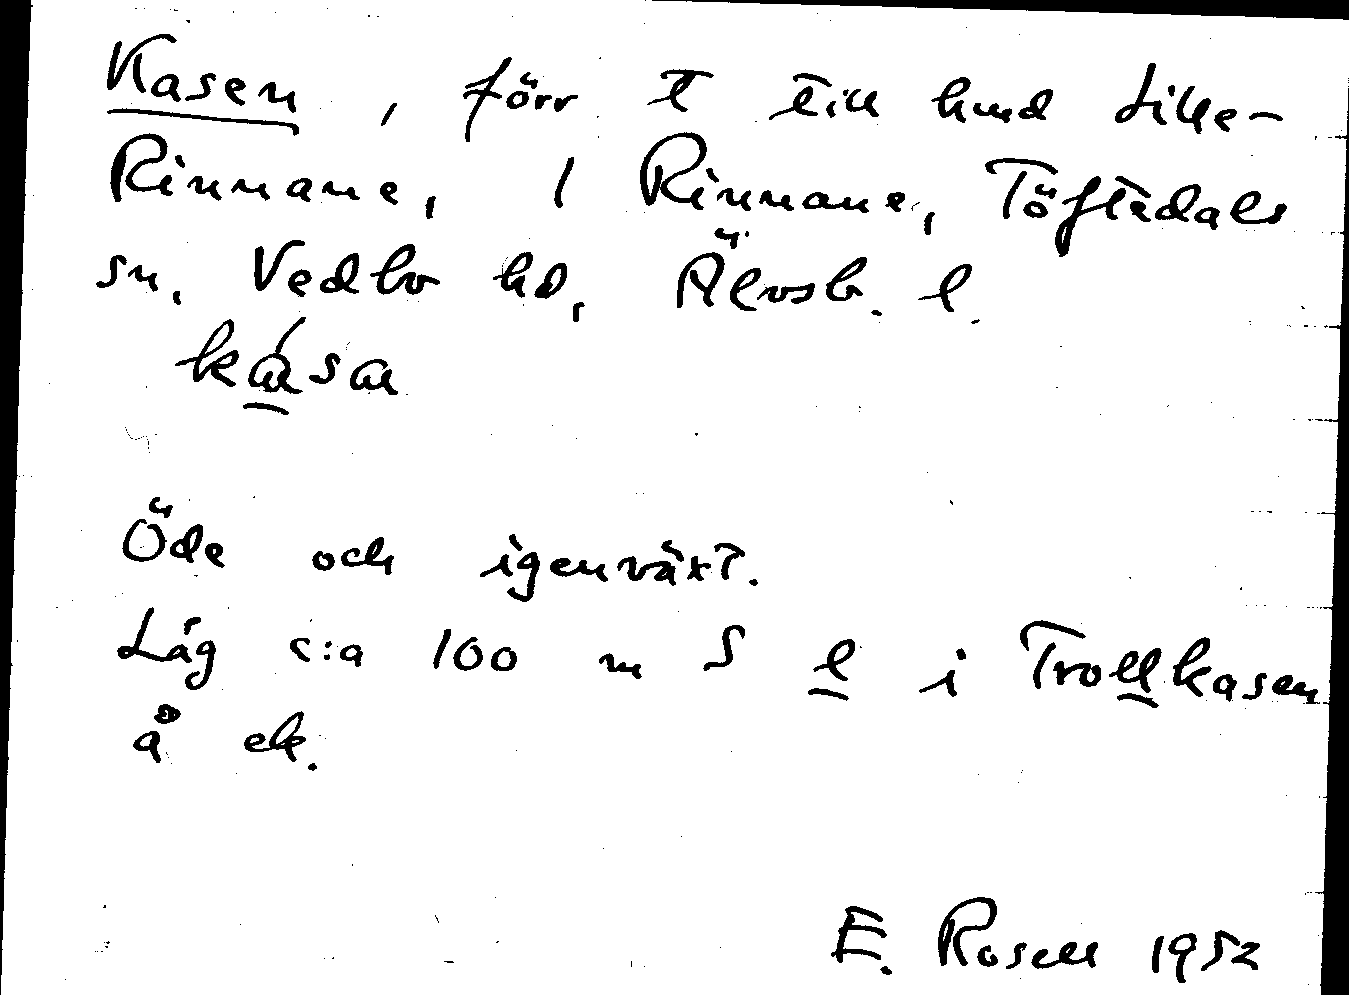 Kasen, förr t till hmd Lille-
Rinnane, 1 Rinnane, Töftedals
sn, Vedbo hd, Älvsb. l.
ká̱sa
Öde och igenväxt.
Låg c:a 100 m S l i Trollkasen
å ek.
E. Rosell 1952